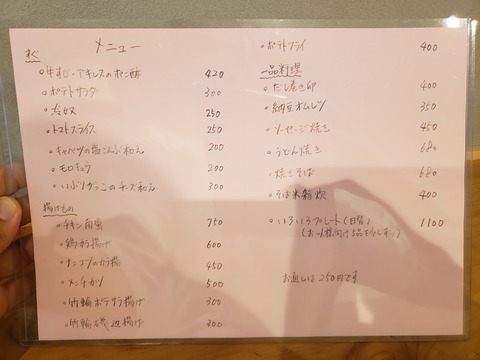 メニュー
すぐ
○牛すじ・アキレスのポン酢 420
○ポテトサラダ 300
○冷奴 250
○トマトスライス 250
○キャベツの塩こんぶ和え 200
○モロキュウ 200
○いぶりがっこのチーズ和え 300
揚げもの
○チキン南蛮 750
○鶏から揚げ 600
○ナンコツのから揚 450
○メンチカツ 500
○竹輪ポテサラ揚げ 300
○竹輪磯辺揚げ 300
○ポテトフライ 400
一品料理
○だし巻き卵 400
○納豆オムレツ 350
○ソーセージ焼き 450
○うどん焼き 680
○焼きそば 680
○そば米雑炊 400
○いろいろプレート(日替) 1100
(お一人様向け5品を少しずつ)
お通しは250円です